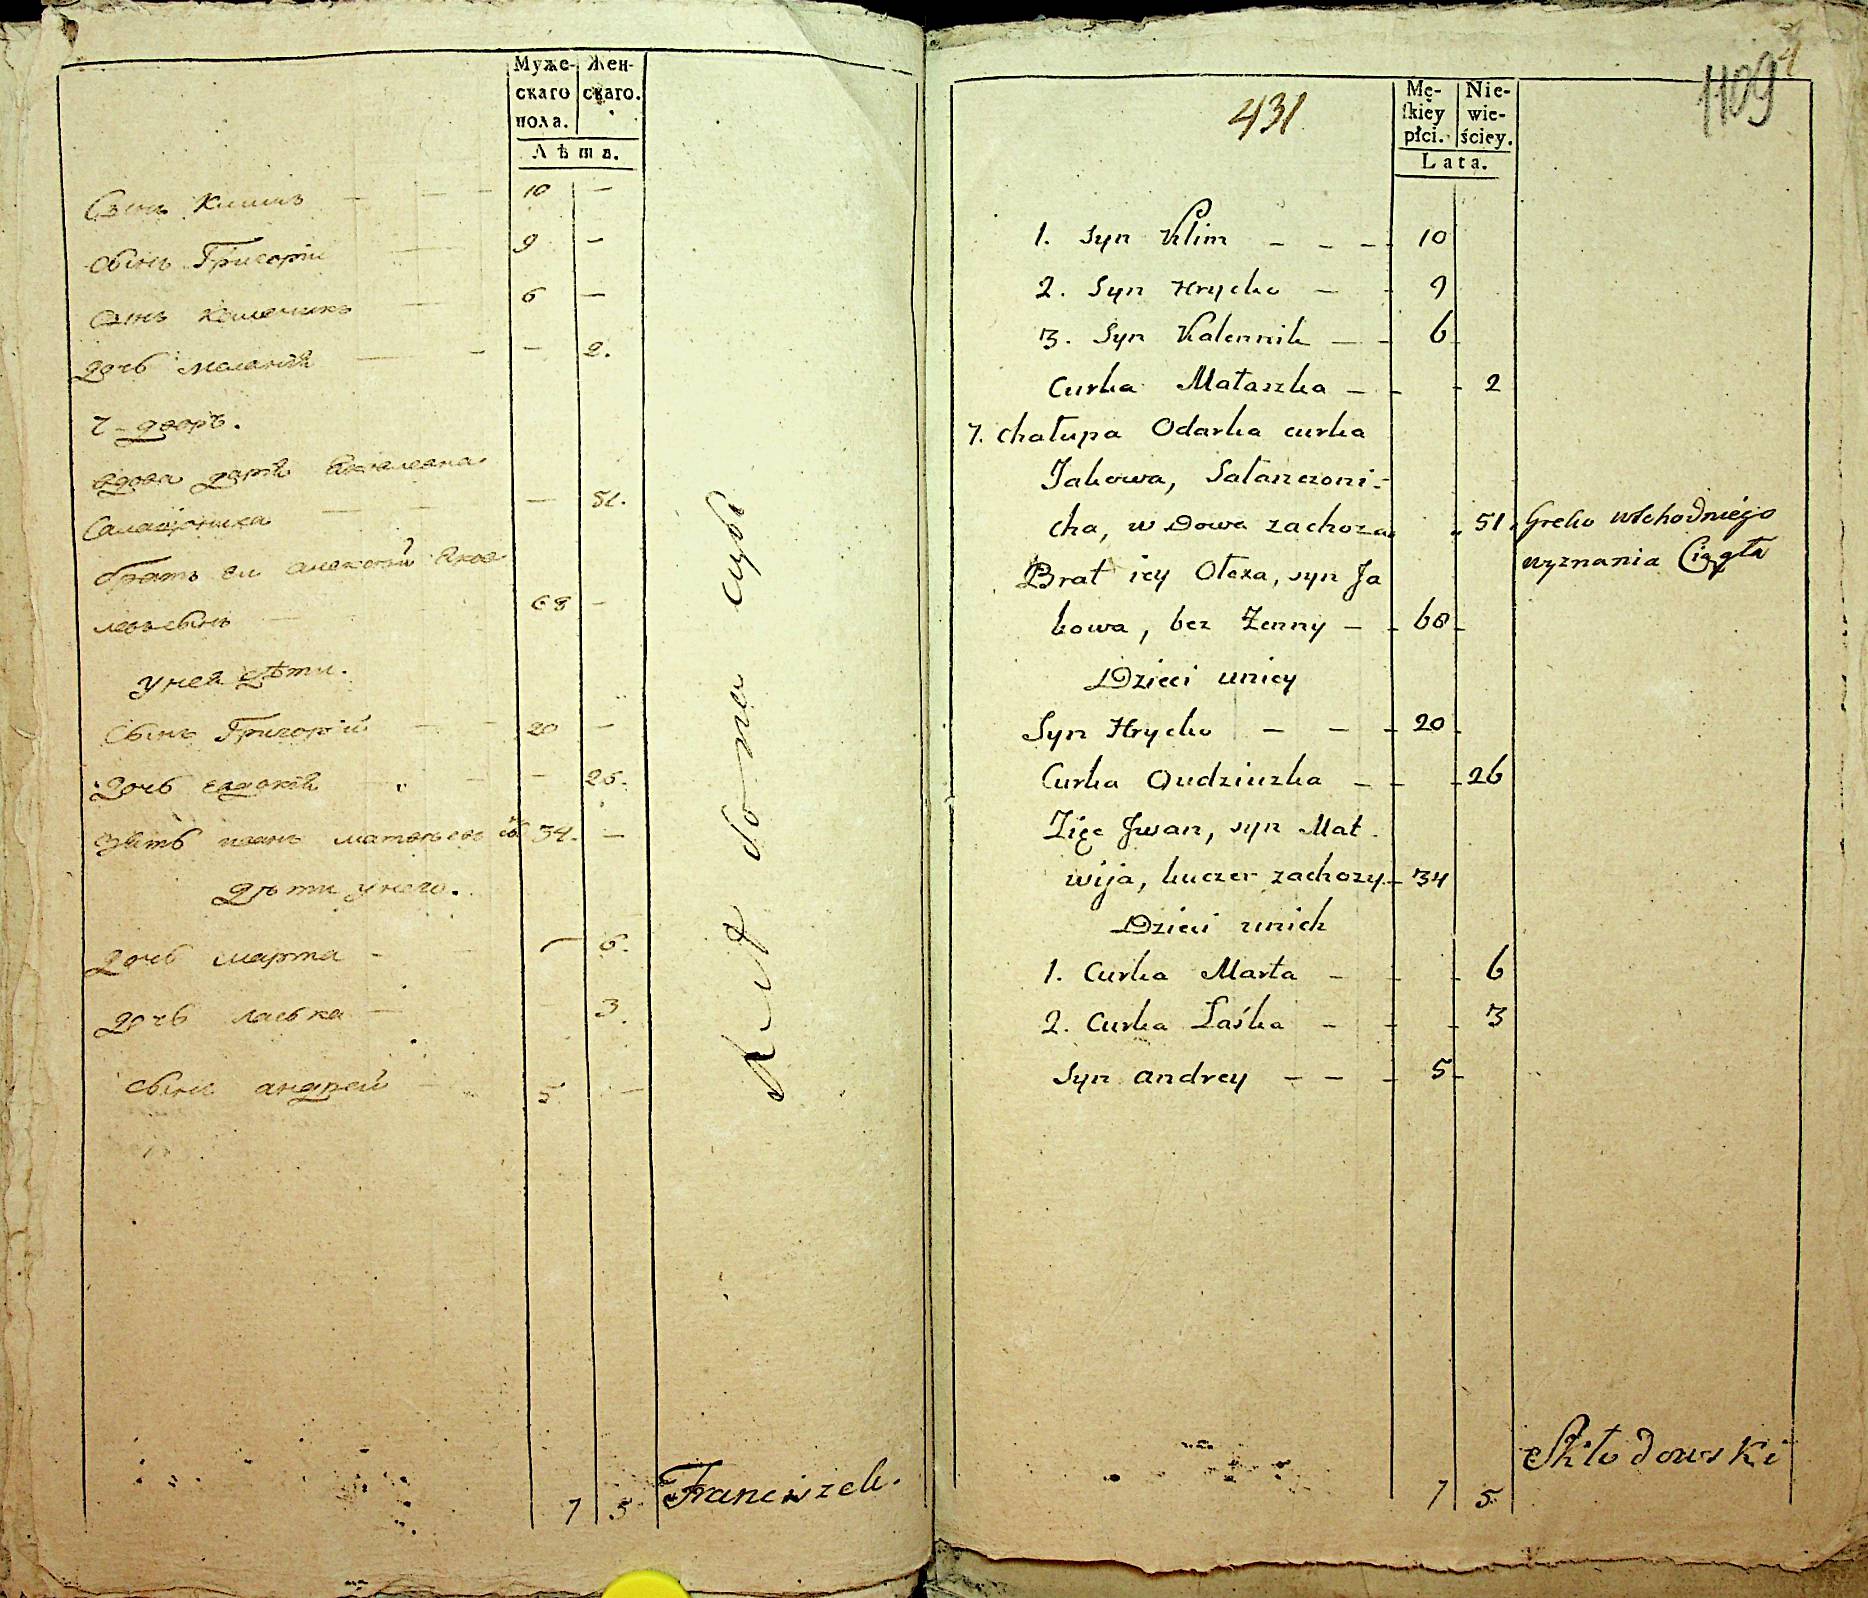 Муже-
скаго
пола.
Жен-
скаго.
Лѣта.
Сынъ Климъ — — — 10 —
сынъ Григорiи — 9 —
сынъ Каленикъ — 6 —
дочь маланiя — — — 2.
7 - дворъ.
вдова дарiя Яковлевна
Саланчониха — — — 51.
братъ еи алексѣй Яков-
левъ сынъ — 68 —
у нея дѣти.
Сынъ Григорiй — — 20 —
дочь евдокiя — — — 26.
зять иванъ матвѣевъ сы 34. —
дѣти у него.
дочь марта — — 6.
дочь ласька — 3.
сынъ андрей — 5 —
7 5
Franciszek.
1109
4
431
Mę-
skiey
płci.
Nie-
wie-
ściey.
Lata.
1. Syn Klim — — — 10
2. Syn Hrycko — - 9
3. Syn Kalennik — - 6
Curka Małaszka — - - 2
7. chałupa Odarka curka
Jakowa, Sałanczoni-
cha, wdowa zachoza 51. Greko wschodniego
wyznania Ciągła
Brat iey Ołexa, syn Ja
kowa, bez Żenny — - 68
Dzieci uniey
Syn Hrycko — — - 20
Curka Oudziuszka — - - 26
Zięc Jwan, syn Mat-
wija, kuczer zachozy - 34
Dzieci unich
1. Curka Marta — - - 6
2. Curka Laśka — - - 3
Syn andrey — — - 5
7 5
Skłodowski